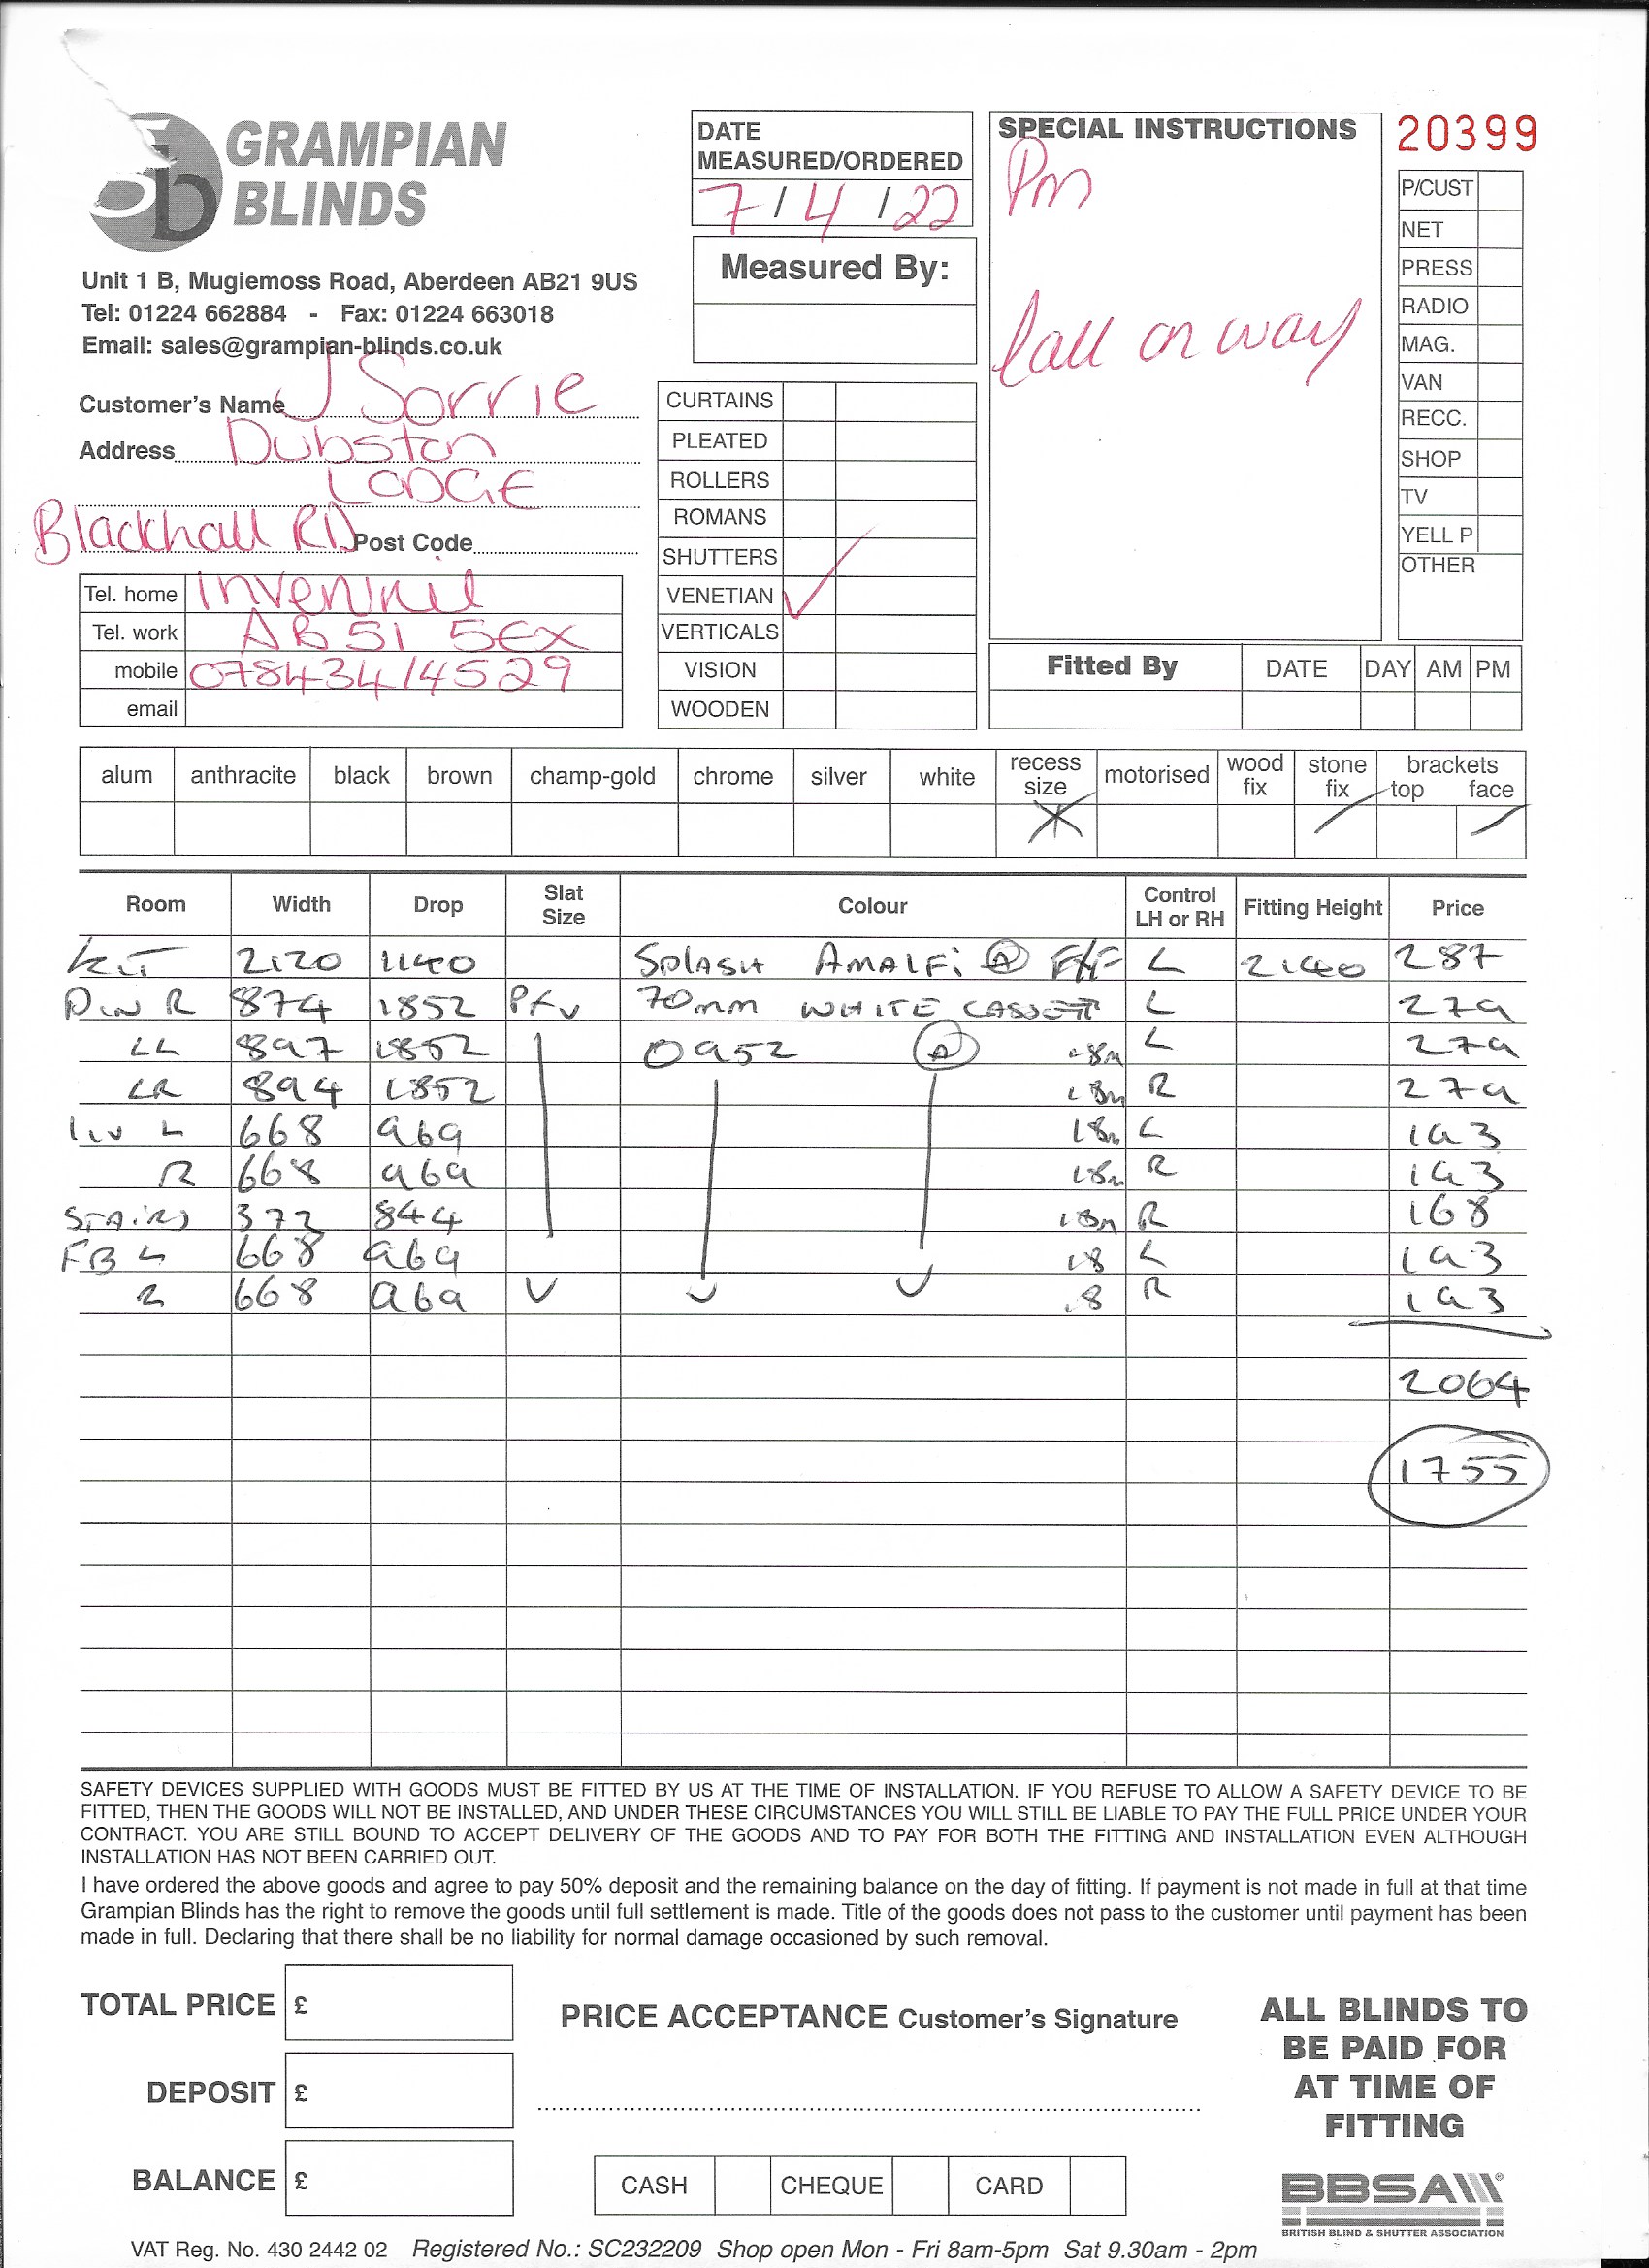 GRAMPIAN
BLINDS
Unit 1 B, Mugiemoss Road, Aberdeen AB21 9US
Tel: 01224 662884 - Fax: 01224 663018
Email: sales@grampian-blinds.co.uk
Customer's Name J Sorrie
Address Dubston
LODGE
Blackhall RD Post Code
Tel. home Inverurie
Tel. work AB51 5EX
mobile 07843414529
email
DATE
MEASURED/ORDERED
7/4/22
Measured By:
CURTAINS
PLEATED
ROLLERS
ROMANS
SHUTTERS
VENETIAN ✓
VERTICALS
VISION
WOODEN
SPECIAL INSTRUCTIONS
Pm
Call on way
20399
P/CUST
NET
PRESS
RADIO
MAG.
VAN
RECC.
SHOP
TV
YELL P
OTHER
Fitted By DATE DAY AM PM
alum anthracite black brown champ-gold chrome silver white recess size motorised wood fix stone fix brackets top face
Room Width Drop Slat Size Colour Control LH or RH Fitting Height Price
KIT 2120 1140 SPLASH AMALFi A F/F L 2140 287
DIN R 874 1852 PFV 70mm WHITE CASSETT L 279
LL 897 1852 0952 A 18m L 279
LR 894 1852 18m R 279
LIV L 668 969 18m L 193
R 668 969 18m R 193
STAIRS 372 844 18m R 168
FB L 668 969 18 L 193
R 668 969 18 R 193
2064
1755
SAFETY DEVICES SUPPLIED WITH GOODS MUST BE FITTED BY US AT THE TIME OF INSTALLATION. IF YOU REFUSE TO ALLOW A SAFETY DEVICE TO BE
FITTED, THEN THE GOODS WILL NOT BE INSTALLED, AND UNDER THESE CIRCUMSTANCES YOU WILL STILL BE LIABLE TO PAY THE FULL PRICE UNDER YOUR
CONTRACT. YOU ARE STILL BOUND TO ACCEPT DELIVERY OF THE GOODS AND TO PAY FOR BOTH THE FITTING AND INSTALLATION EVEN ALTHOUGH
INSTALLATION HAS NOT BEEN CARRIED OUT.
I have ordered the above goods and agree to pay 50% deposit and the remaining balance on the day of fitting. If payment is not made in full at that time
Grampian Blinds has the right to remove the goods until full settlement is made. Title of the goods does not pass to the customer until payment has been
made in full. Declaring that there shall be no liability for normal damage occasioned by such removal.
TOTAL PRICE £
DEPOSIT £
BALANCE £
PRICE ACCEPTANCE Customer's Signature
CASH CHEQUE CARD
ALL BLINDS TO
BE PAID FOR
AT TIME OF
FITTING
BBSA
BRITISH BLIND & SHUTTER ASSOCIATION
VAT Reg. No. 430 2442 02 Registered No.: SC232209 Shop open Mon - Fri 8am-5pm Sat 9.30am - 2pm